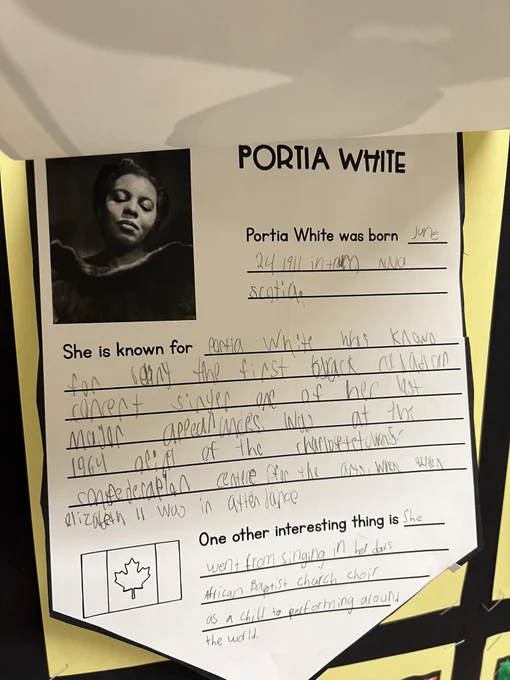 PORTIA WHITE
Portia White was born June
24 1911 in
scotia.
She is known for Portia White was known
for the first black
concert singer one of her last
major appearances. was at the
1964 of the
centere for the arts. where
elizabeth II was in attendance
One other interesting thing is She
went from singing in her dads
African Baptist church choir
as a chill to performing around
the world.